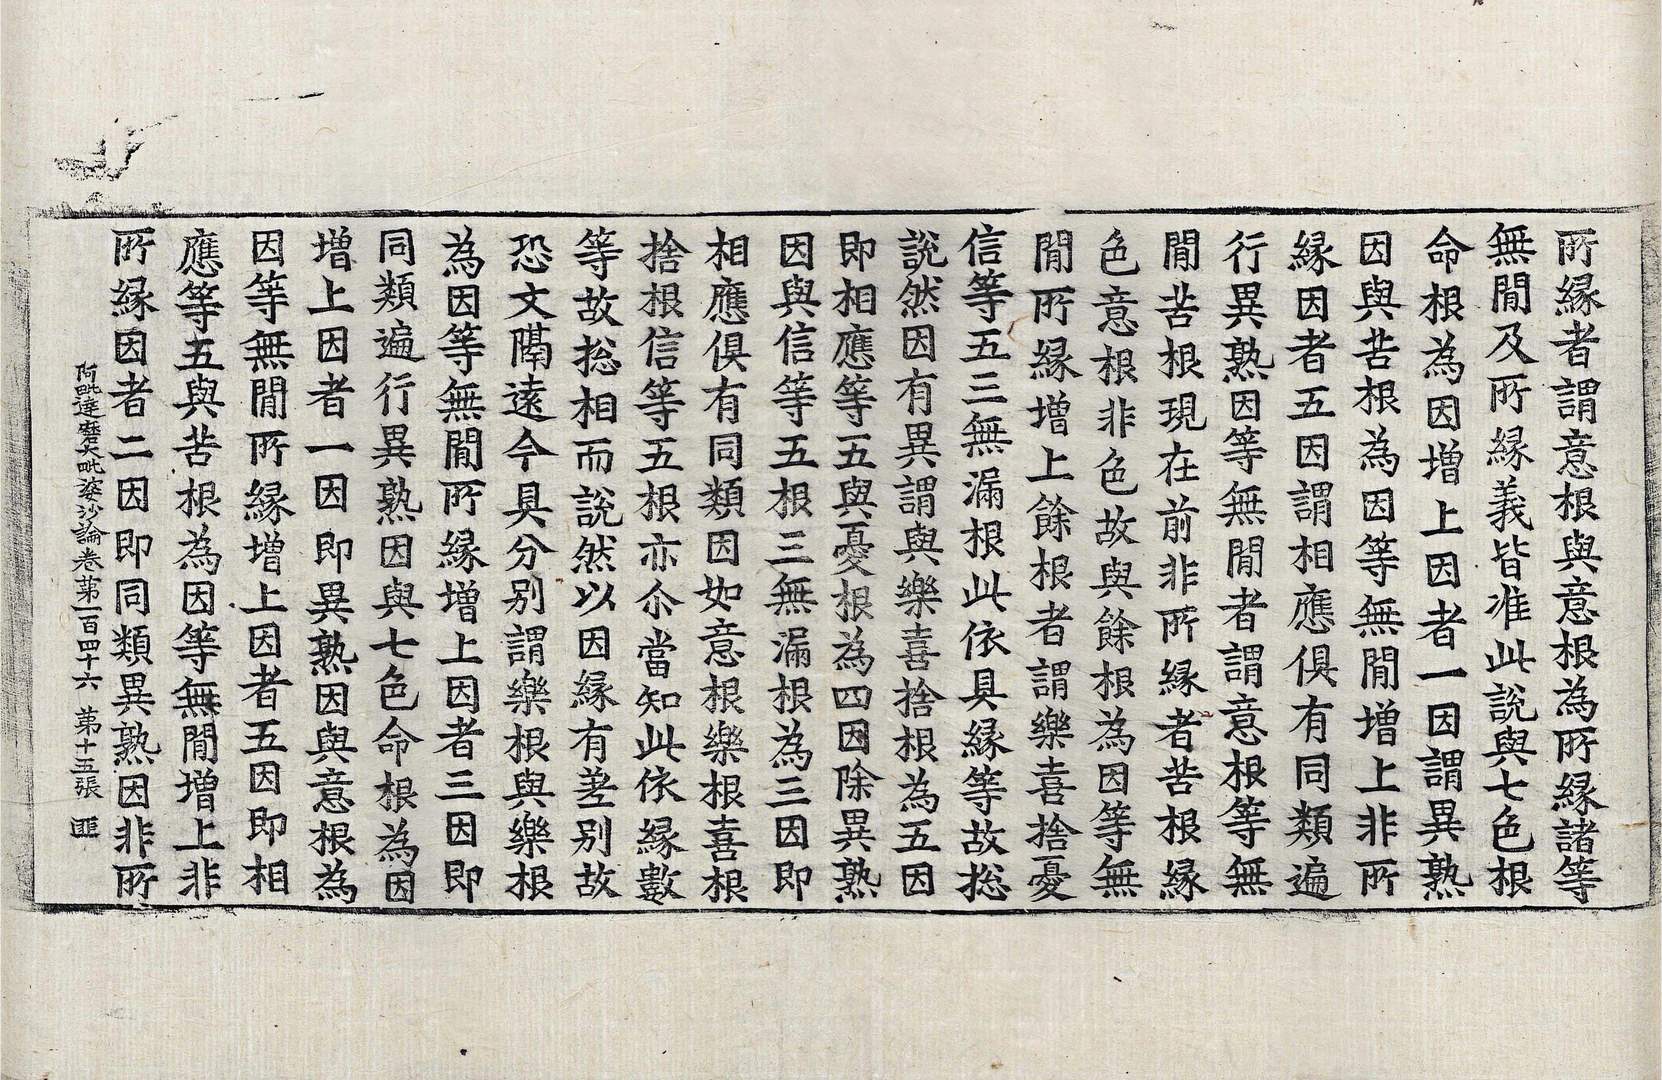 所緣者謂意根與意根為所緣諸等
無閒及所緣義皆准此說與七色根
命根為因增上因者一因謂異熟
因與苦根為因等無閒增上非所
緣因者五因謂相應俱有同類遍
行異熟因等無閒者謂意根等無
閒苦根現在前非所緣者苦根緣
色意根非色故與餘根為因等無
閒所緣增上餘根者謂樂喜捨憂
信等五三無漏根此依具緣等故捴
說然因有異謂與樂喜捨根為五因
即相應等五與憂根為四因除異熟
因與信等五根三無漏根為三因即
相應俱有同類因如意根樂根喜根
捨根信等五根亦尒當知此依緣數
等故捴相而說然以因緣有差別故
恐文隔遠今具分別謂樂根與樂根
為因等無閒所緣增上因者三因即
同類遍行異熟因與七色命根為因
增上因者一因即異熟因與意根為
因等無閒所緣增上因者五因即相
應等五與苦根為因等無閒增上非
所緣因者二因即同類異熟因非所
阿毗達磨大毗婆沙論卷第一百四十六 第十五張 匪